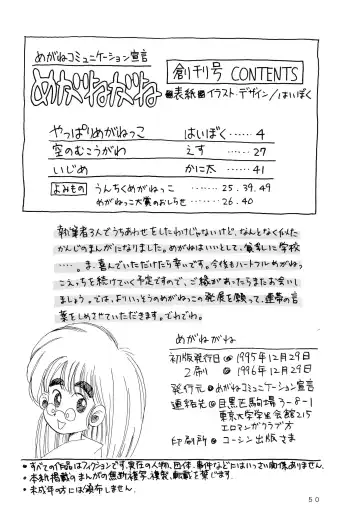 めがねコミュニケーション宣言
めがねがね
創刊号 CONTENTS
表紙 イラスト・デザイン/はいぼく
やっぱりめがねっこ はいぼく……4
空のむこうがわ えす……27
いじめ かに太……41
よみもの うんちくめがねっこ ……25.39.49
めがねっこ大賞のおしらせ ……26.40
執筆者3人でうちあわせをしたわけじゃないけど、なんとなく似た
かんじのまんがになりました。めがねはいいとして、偏刺しに学校
……。ま、喜んでいただけたら幸いです。今後もハートフルめがねっ
こえっちを続けていく予定ですので、ご縁があったらまたお会いし
ましょう。では、よりいっそうのめがねっこの発展を願って、連帯の言
葉をしめさせていただきます。でわでわ。
めがねがね
初版発行日@1995年12月29日
2刷@1996年12月29日
発行元@めがねコミュニケーション宣言
連絡先@目黒区駒場3-8-1
東京大学学生会館215
エロマンガクラブ方
印刷所@コーシン出版さま
•すべての作品はフィクションです。実在の人物、団体、事件などにはいっさい関係ありません。
•本誌掲載のまんがの無断複写、複製、転載を禁じます。
•未成年の方には頒布しません。
50